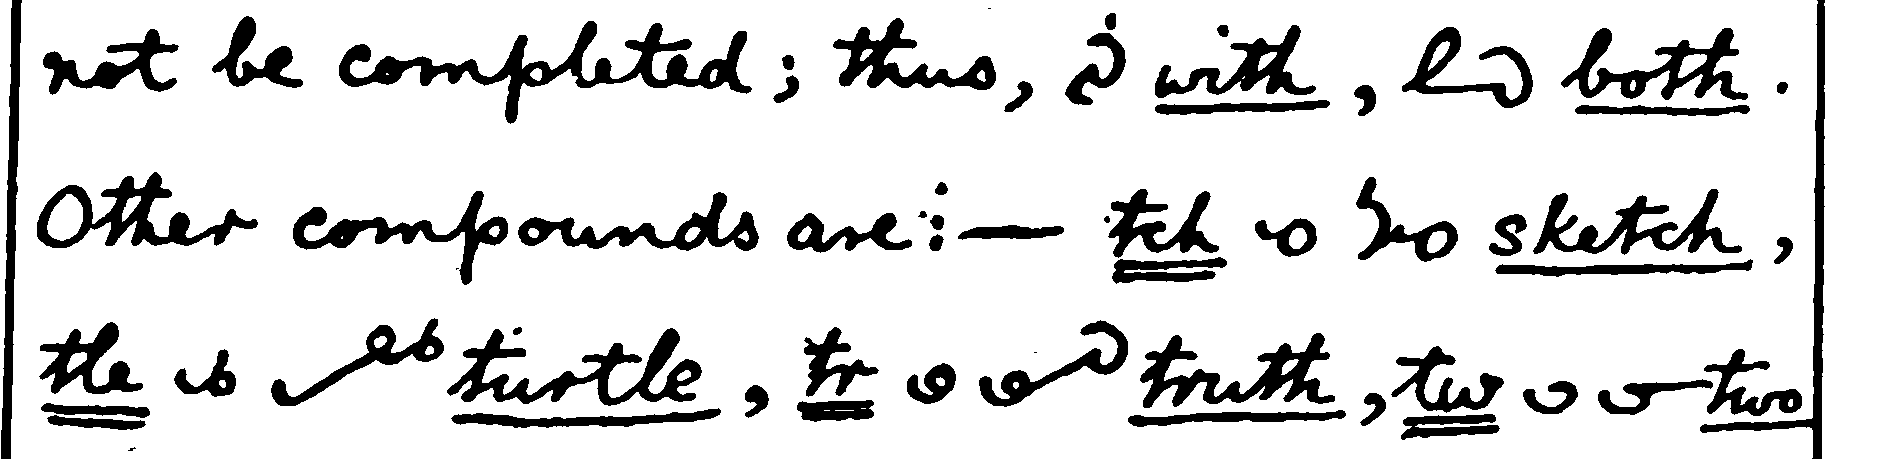 not be completed; thus, with, both.
Other compounds are:— tch sketch,
tle turtle, tr truth, tw two